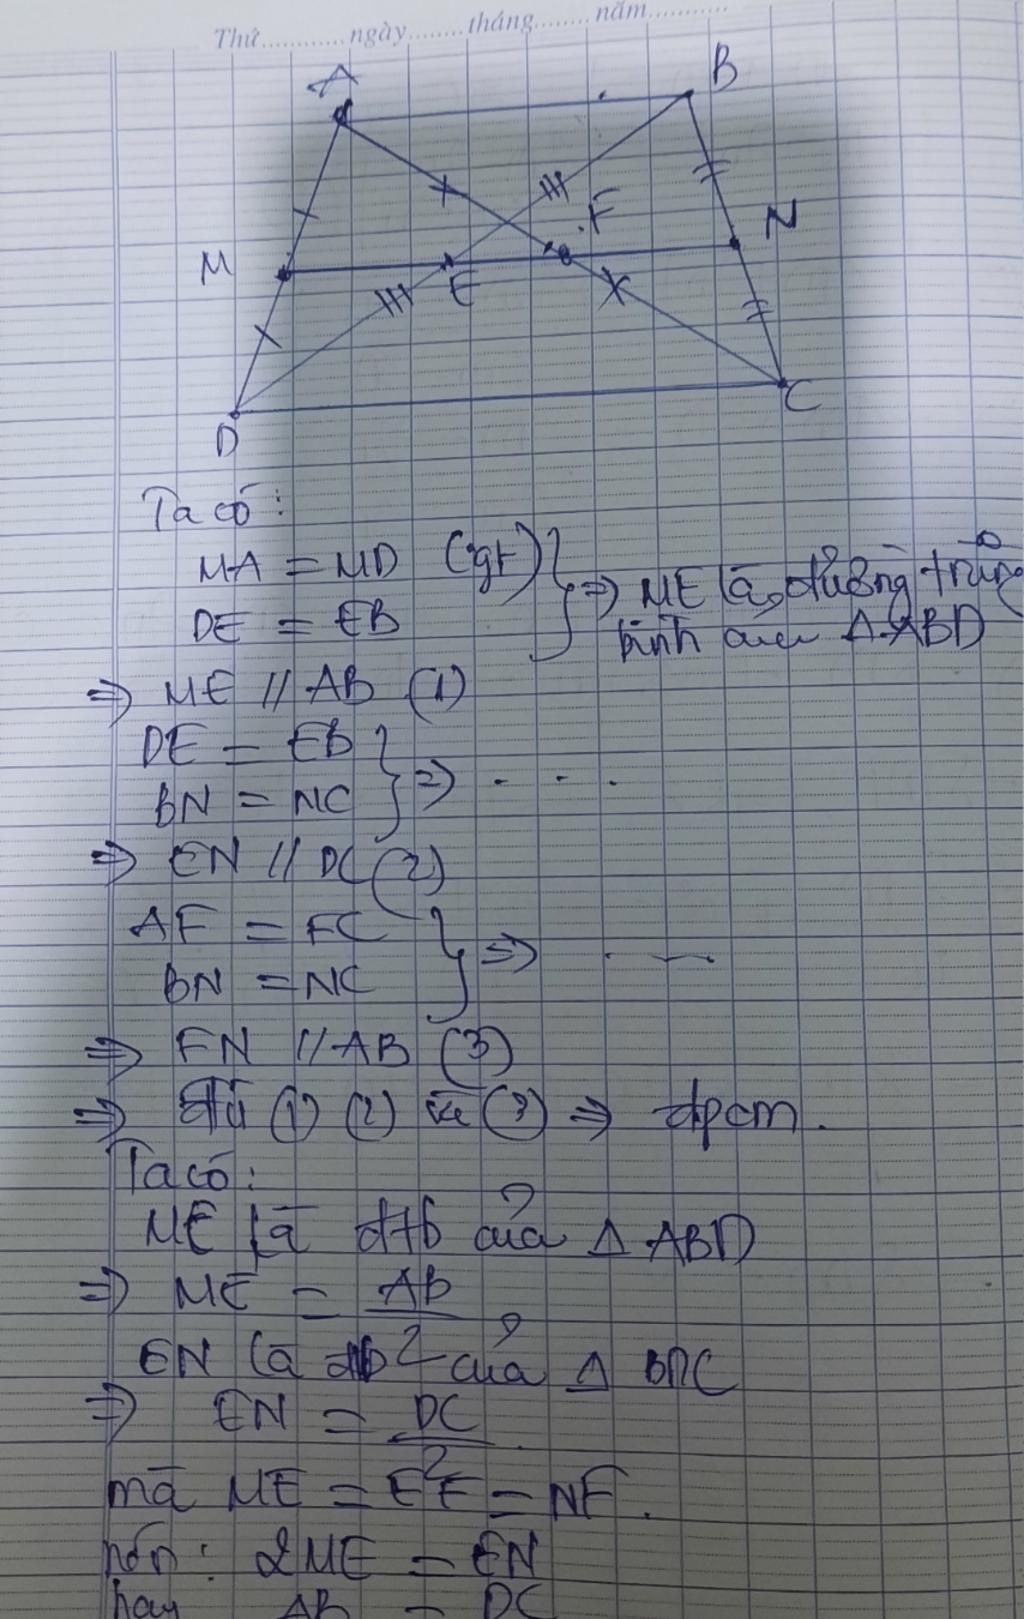 Thứ............ngày........tháng........năm...........
A
B
F
N
M
E
D
C
Ta có:
MA = MD (gt)
DE = EB
} => ME là đường trung
bình của Δ ABD
=> ME // AB (1)
DE = EB
BN = NC
} => . . .
=> EN // DC (2)
AF = FC
BN = NC
} =>
=> FN // AB (3)
=> từ (1) (2) và (3) => đpcm.
Ta có:
ME là đtb của Δ ABD
=> ME = AB/2
EN là đtb của Δ BDC
=> EN = DC/2
mà ME = EF = NF.
nên: 2ME = EN
hay AB = DC